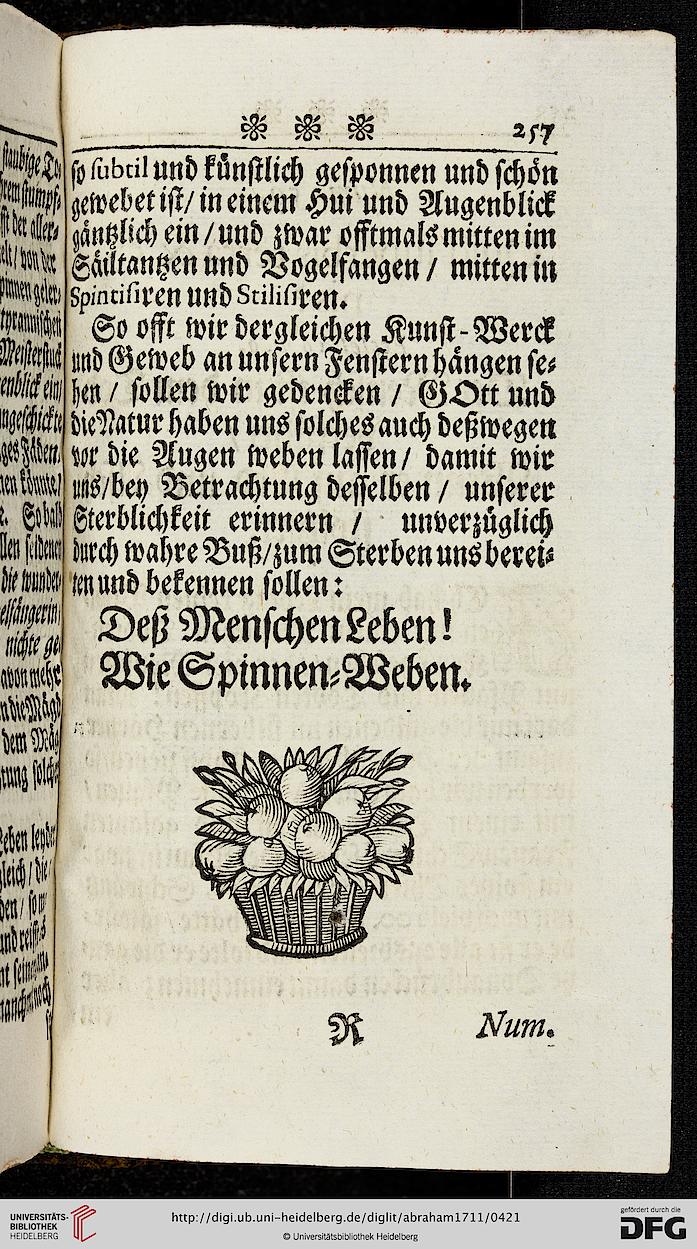 staubige
257
so subtil und künstlich gesponnen und schön
gewebet ist/ in einem Hui und Augenblick
gäntzlich ein / und zwar offtmals mitten im
Säiltantzen und Vogelfangen / mitten in
Spintisiren und Stilisiren.
So offt wir dergleichen Kunst-Werck
und Geweb an unsern Fenstern hängen se-
hen / sollen wir gedencken / GOtt und
die Natur haben uns solches auch deßwegen
vor die Augen weben lassen / damit wir
uns/bey Betrachtung desselben / unserer
Sterblichkeit erinnern / unverzüglich
durch wahre Buß/zum Sterben uns berei-
ten und bekennen sollen:
Deß Menschen Leben!
Wie Spinnen-Weben.
R Num.
UNIVERSITÄTS-
BIBLIOTHEK
HEIDELBERG
http://digi.ub.uni-heidelberg.de/diglit/abraham1711/0421
© Universitätsbibliothek Heidelberg
gefördert durch die
DFG